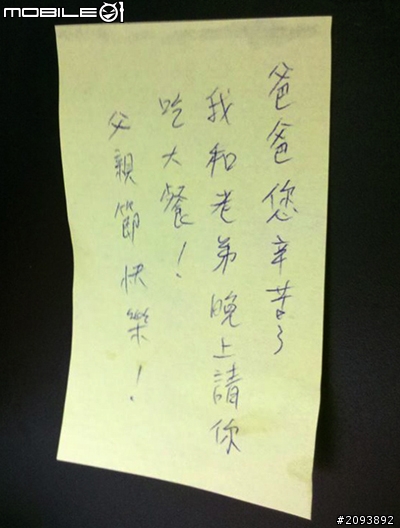 MOBILE01
爸爸您辛苦了
我和老弟晚上請你
吃大餐！
父親節快樂！
#2093892